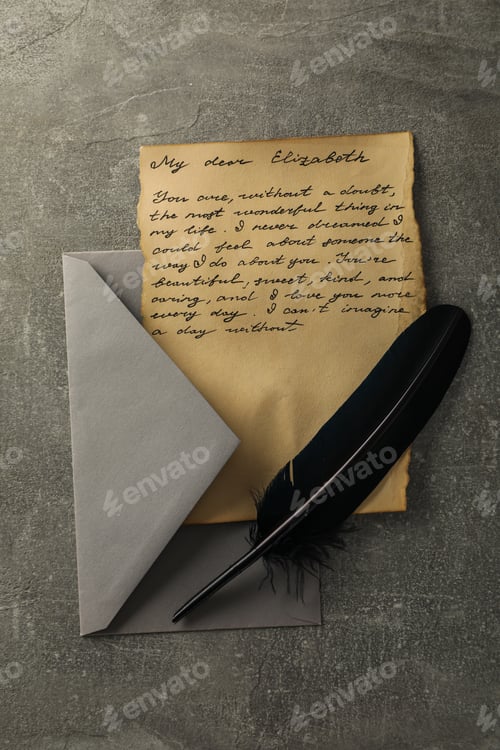 My dear Elizabeth
You are, without a doubt,
the most wonderful thing in
my life. I never dreamed I
could feel about someone the
way I do about you. You're
beautiful, sweet, kind, and
caring, and I love you more
every day. I can't imagine
a day without
envato
envato
envato
envato
envato
envato
envato
envato
envato